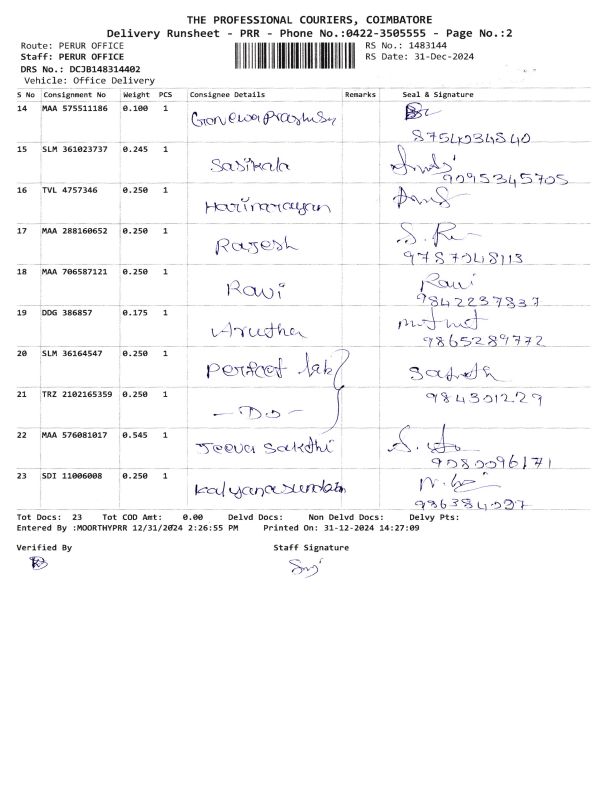 THE PROFESSIONAL COURIERS, COIMBATORE
Delivery Runsheet - PRR - Phone No.:0422-3505555 - Page No.:2
Route: PERUR OFFICE
RS No.: 1483144
Staff: PERUR OFFICE
RS Date: 31-Dec-2024
DRS No.: DCJB148314402
Vehicle: Office Delivery
S No Consignment No Weight PCS Consignee Details Remarks Seal & Signature
14 MAA 575511186 0.100 1
8754034840
15 SLM 361023737 0.245 1 Sasikala
9095345705
16 TVL 4757346 0.250 1 Harinarayan
17 MAA 288160652 0.250 1 Rajesh
9787048113
18 MAA 706587121 0.250 1 Ravi Ravi
9842237837
19 DDG 386857 0.175 1
9865289772
20 SLM 36164547 0.250 1 Perfect lab
21 TRZ 2102165359 0.250 1 - Do - 984301229
22 MAA 576081017 0.545 1 Jeeva Sakthi
9080096171
23 SDI 11006008 0.250 1 Kalyanasundam
986384097
Tot Docs: 23 Tot COD Amt: 0.00 Delvd Docs: Non Delvd Docs: Delvy Pts:
Entered By :MOORTHYPRR 12/31/2024 2:26:55 PM Printed On: 31-12-2024 14:27:09
Verified By Staff Signature